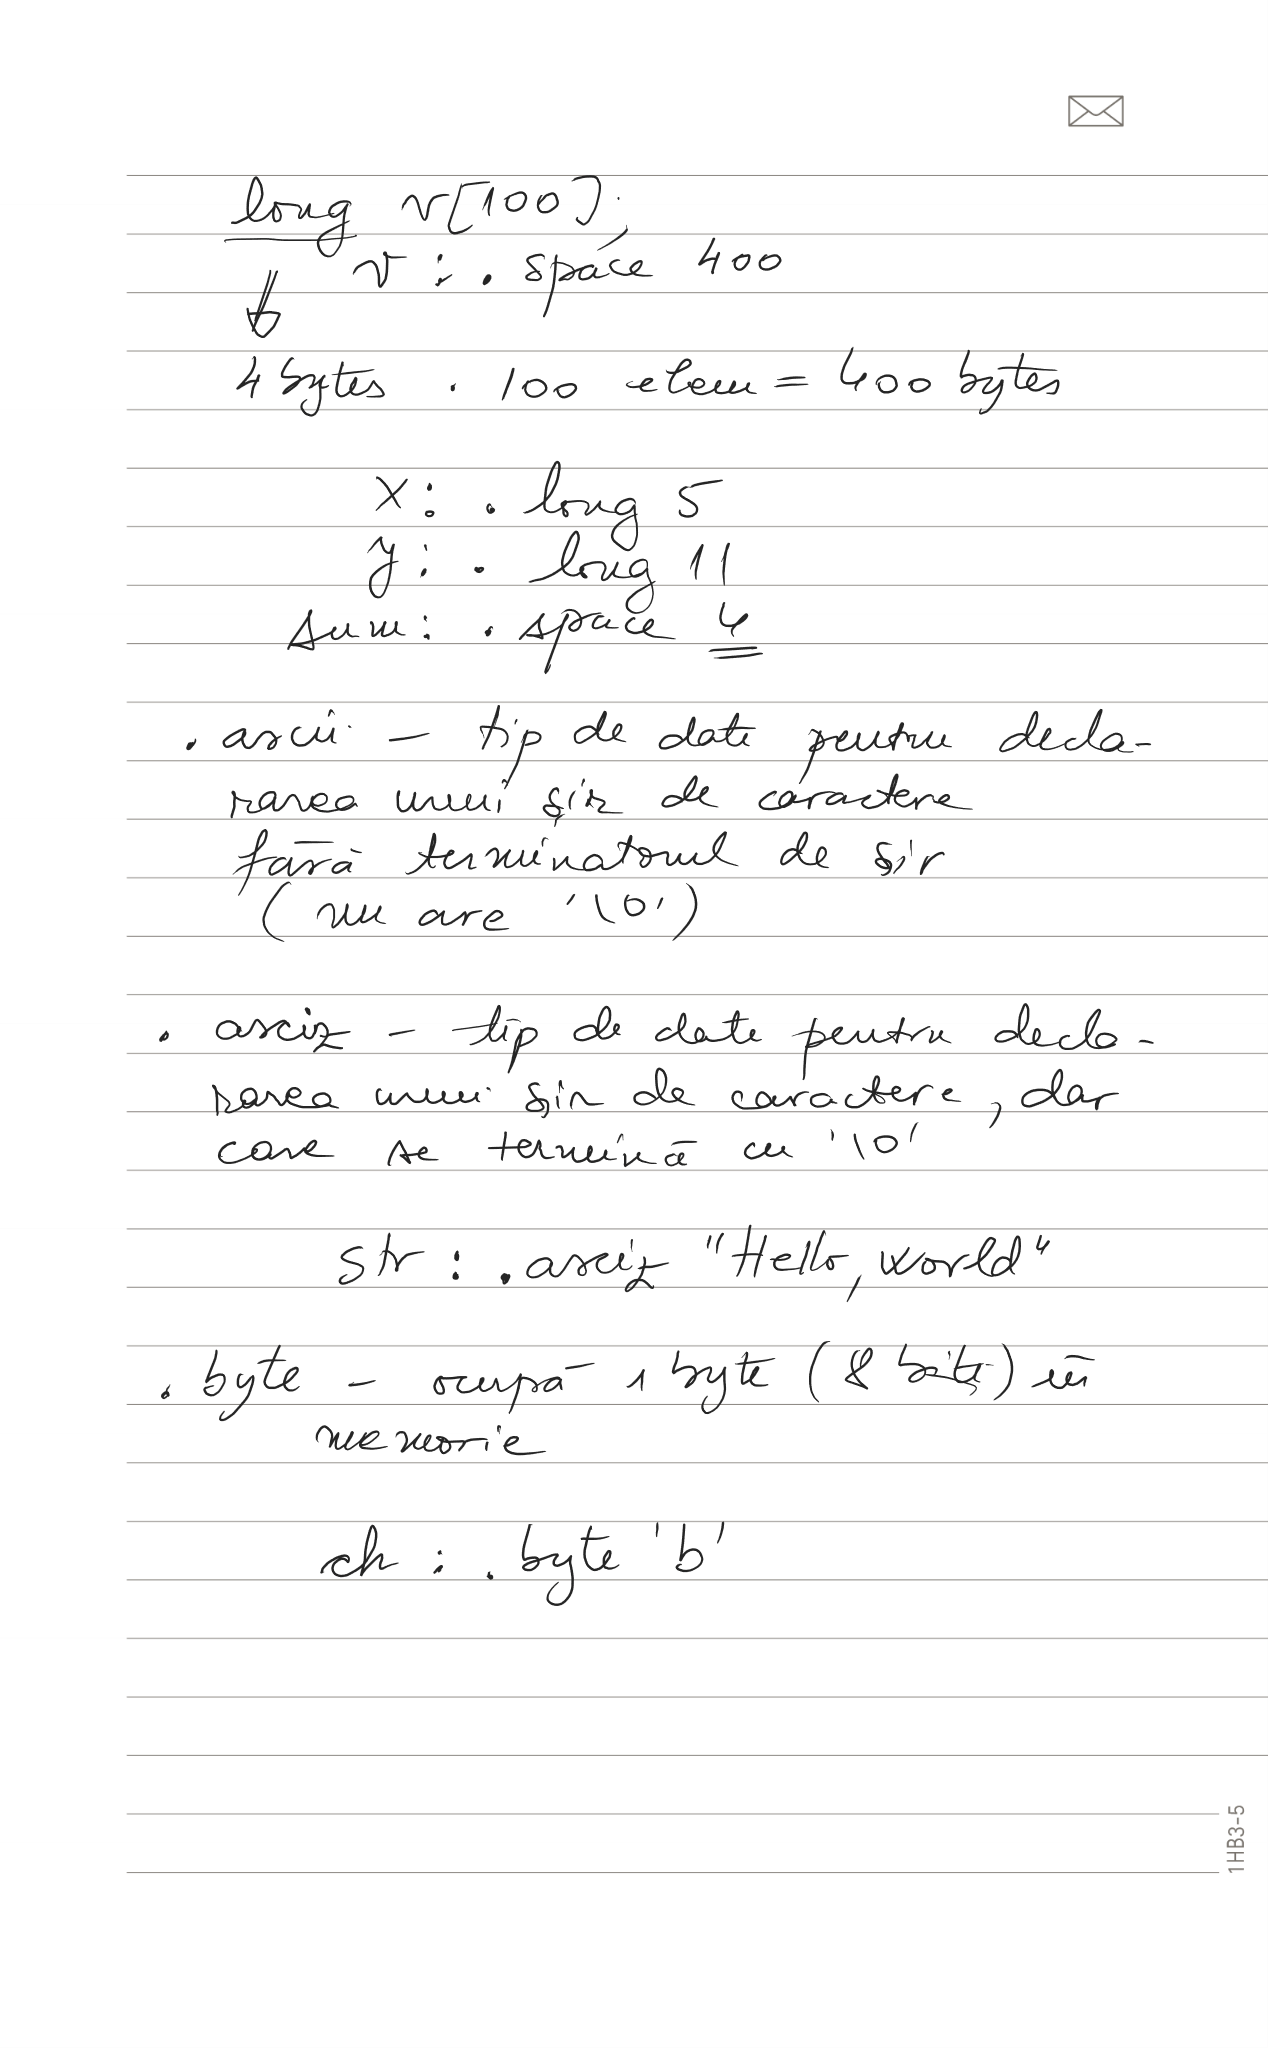 long v[100];
v : .space 400
4 bytes . 100 elem = 400 bytes
x: .long 5
y: .long 11
sum: .space 4
.ascii - tip de date pentru decla-
rarea unui șir de caractere
fără terminatorul de șir
(nu are '\0')
.asciz - tip de date pentru decla-
rarea unui șir de caractere, dar
care se termină cu '\0'
str : .asciz "Hello, world"
.byte - ocupă 1 byte (8 biți) în
memorie
ch : .byte 'b'
1HB3-5